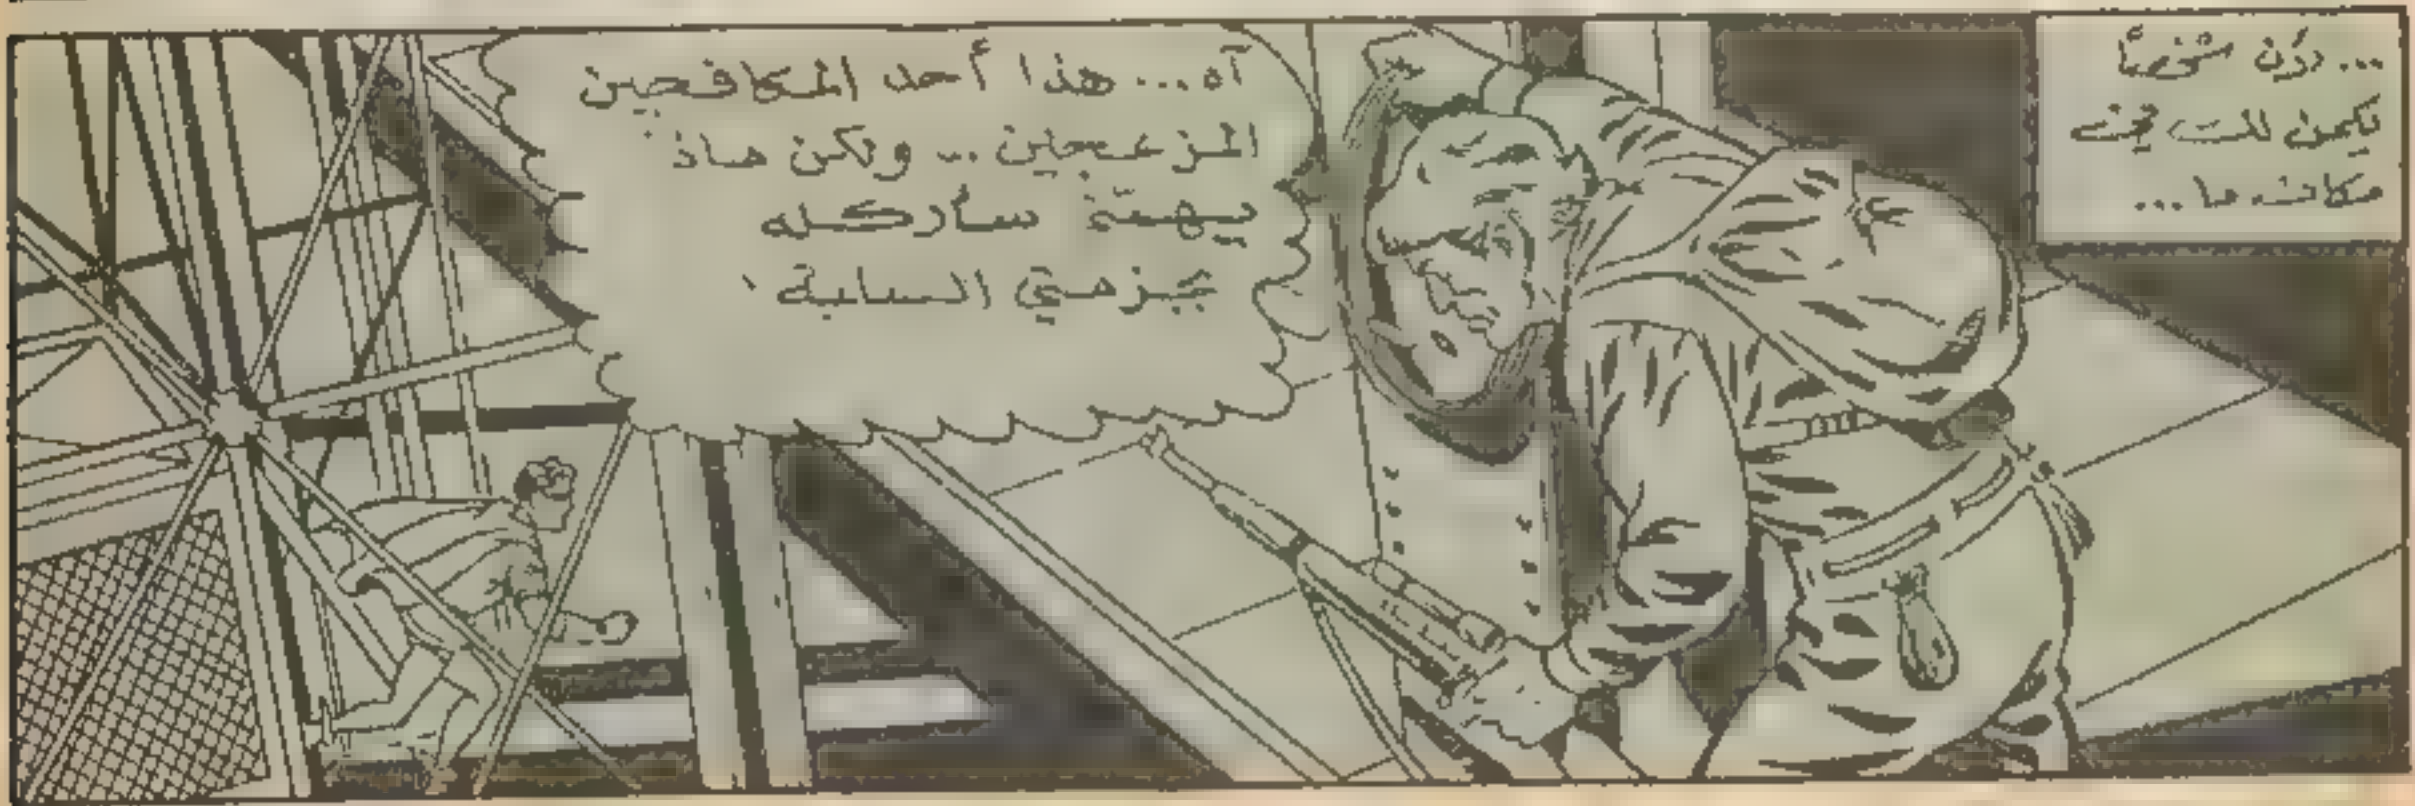 ... لأن شخصاً
يكمن لك في
مكان ما ...
آه... هذا أحد المكافحين
المزعجين .. ولكن ماذا
يهمّ سأركله
بجزمتي السلبة